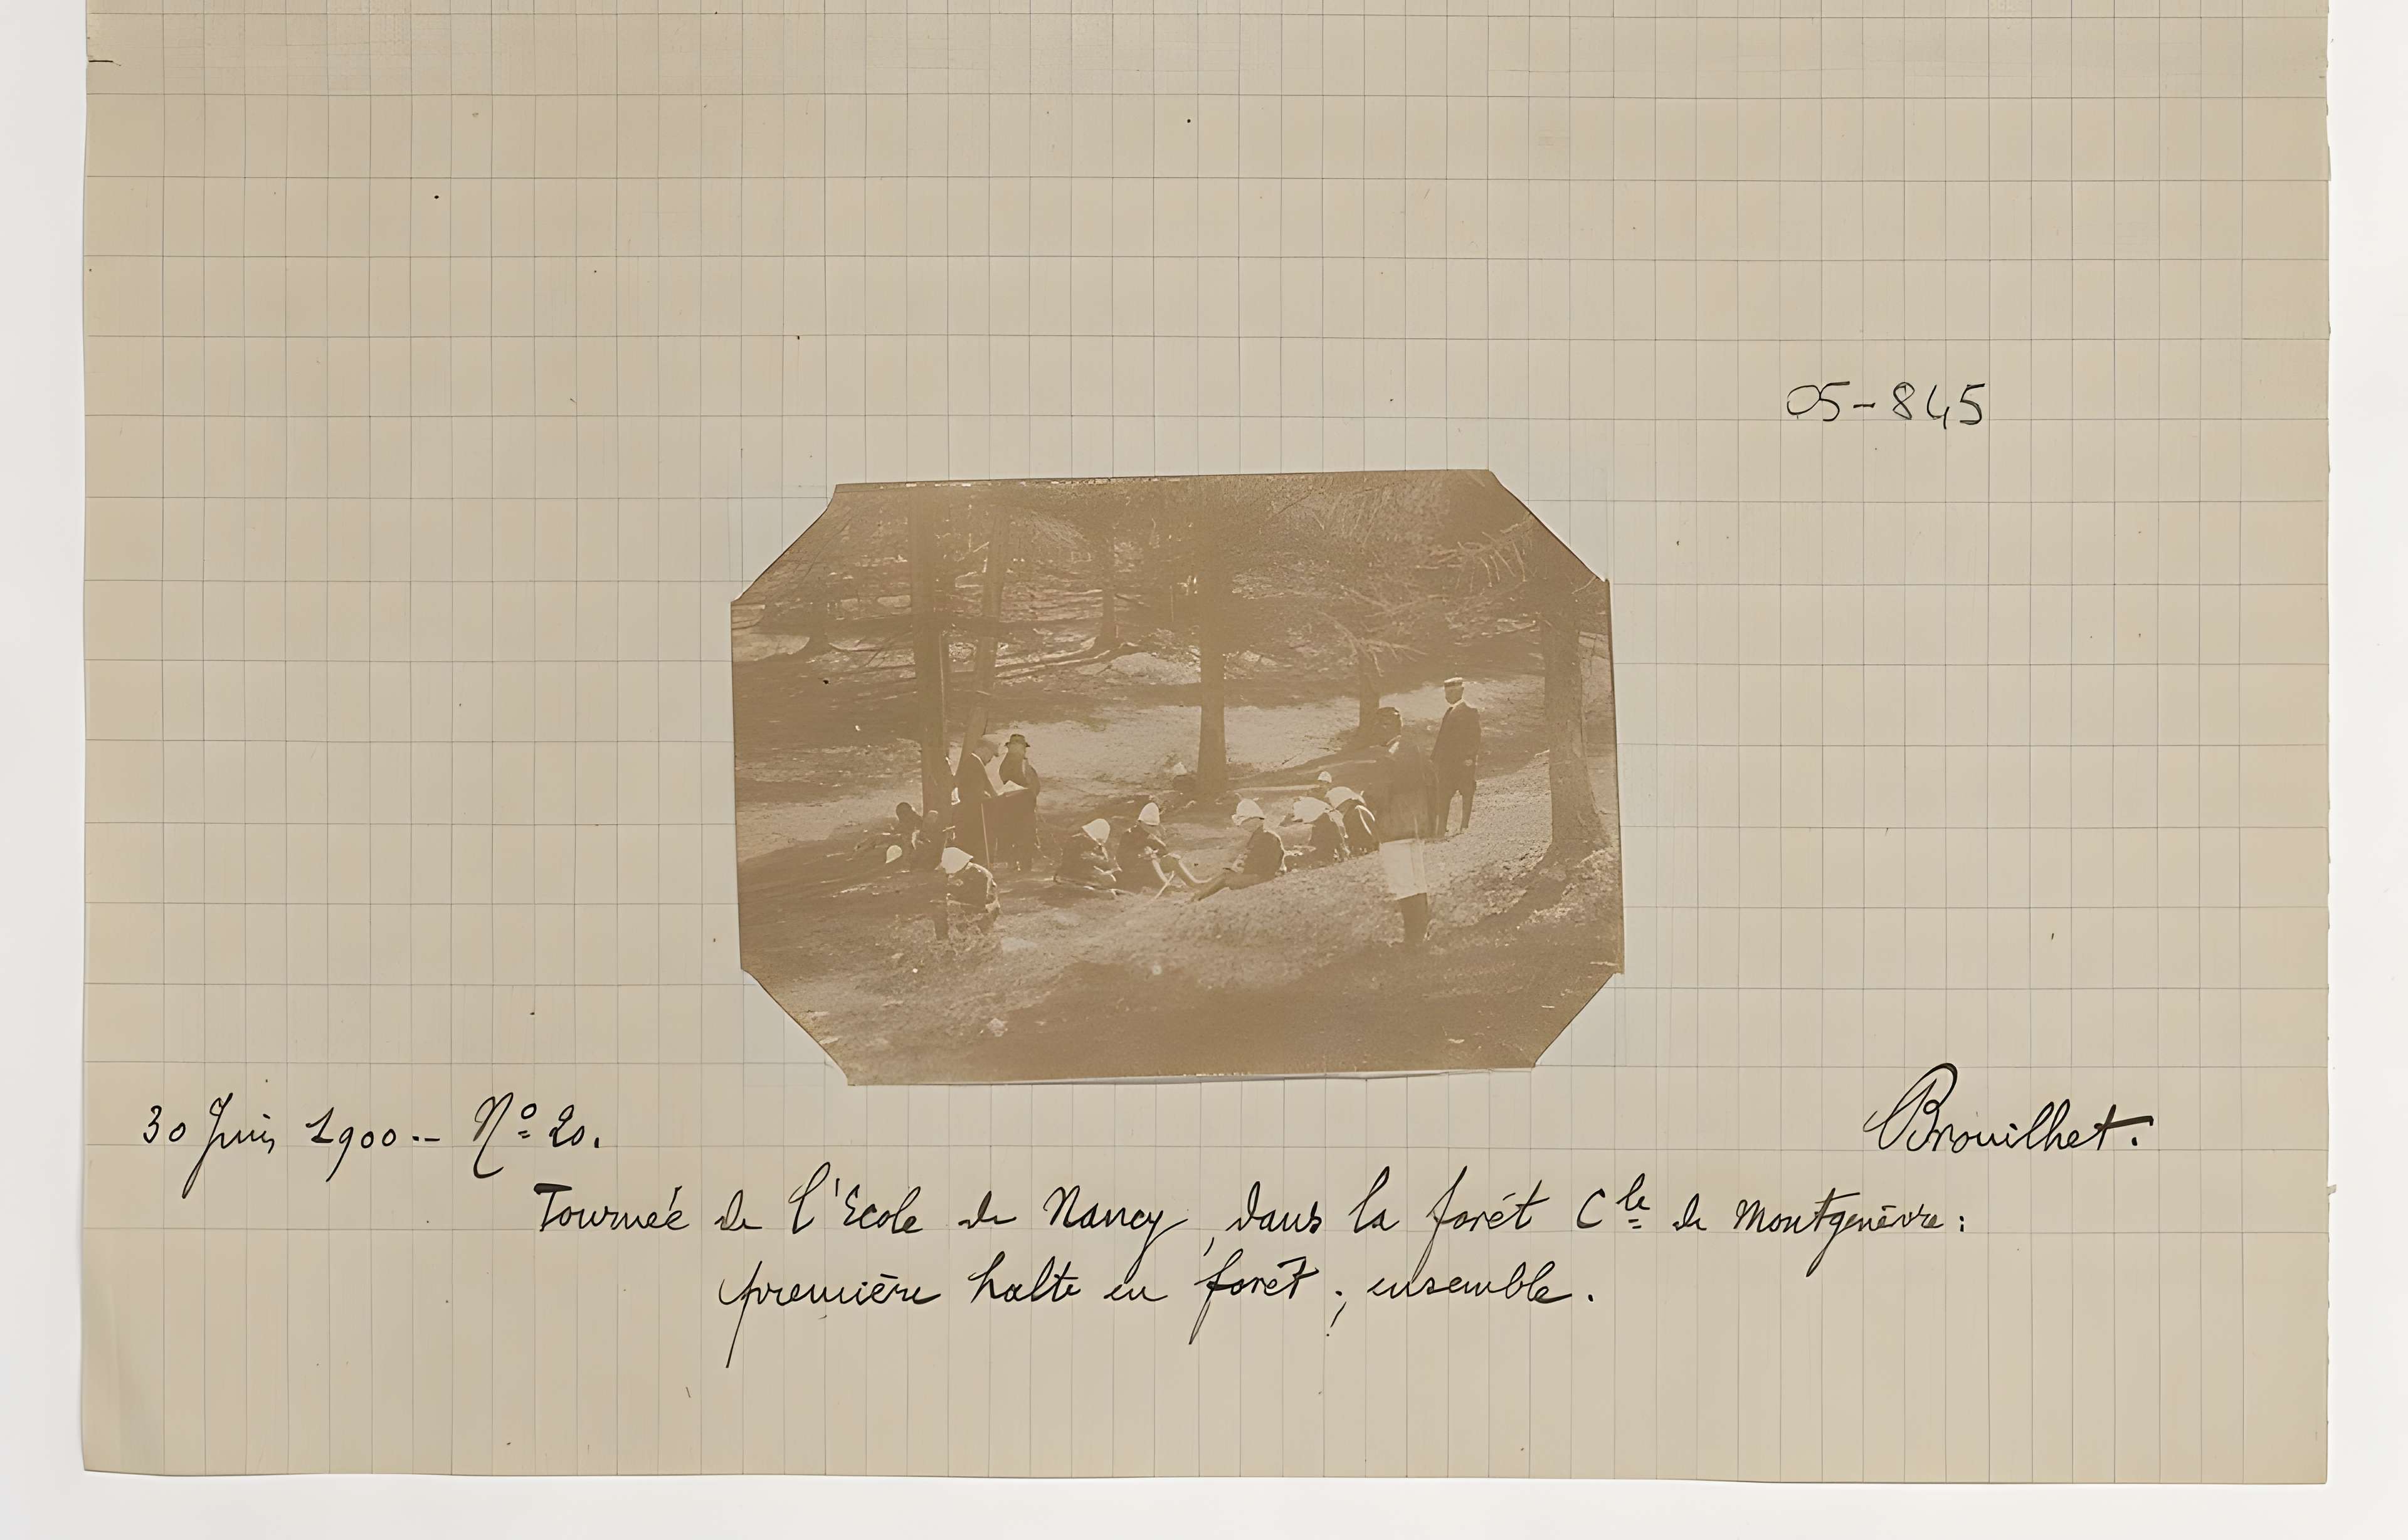 05-845
30 Juin 1900.- Nº 20.
Brouilhet.
Tournée de l'Ecole de Nancy, dans la forêt Cle de Montgenèvre :
première halte en forêt ; ensemble.